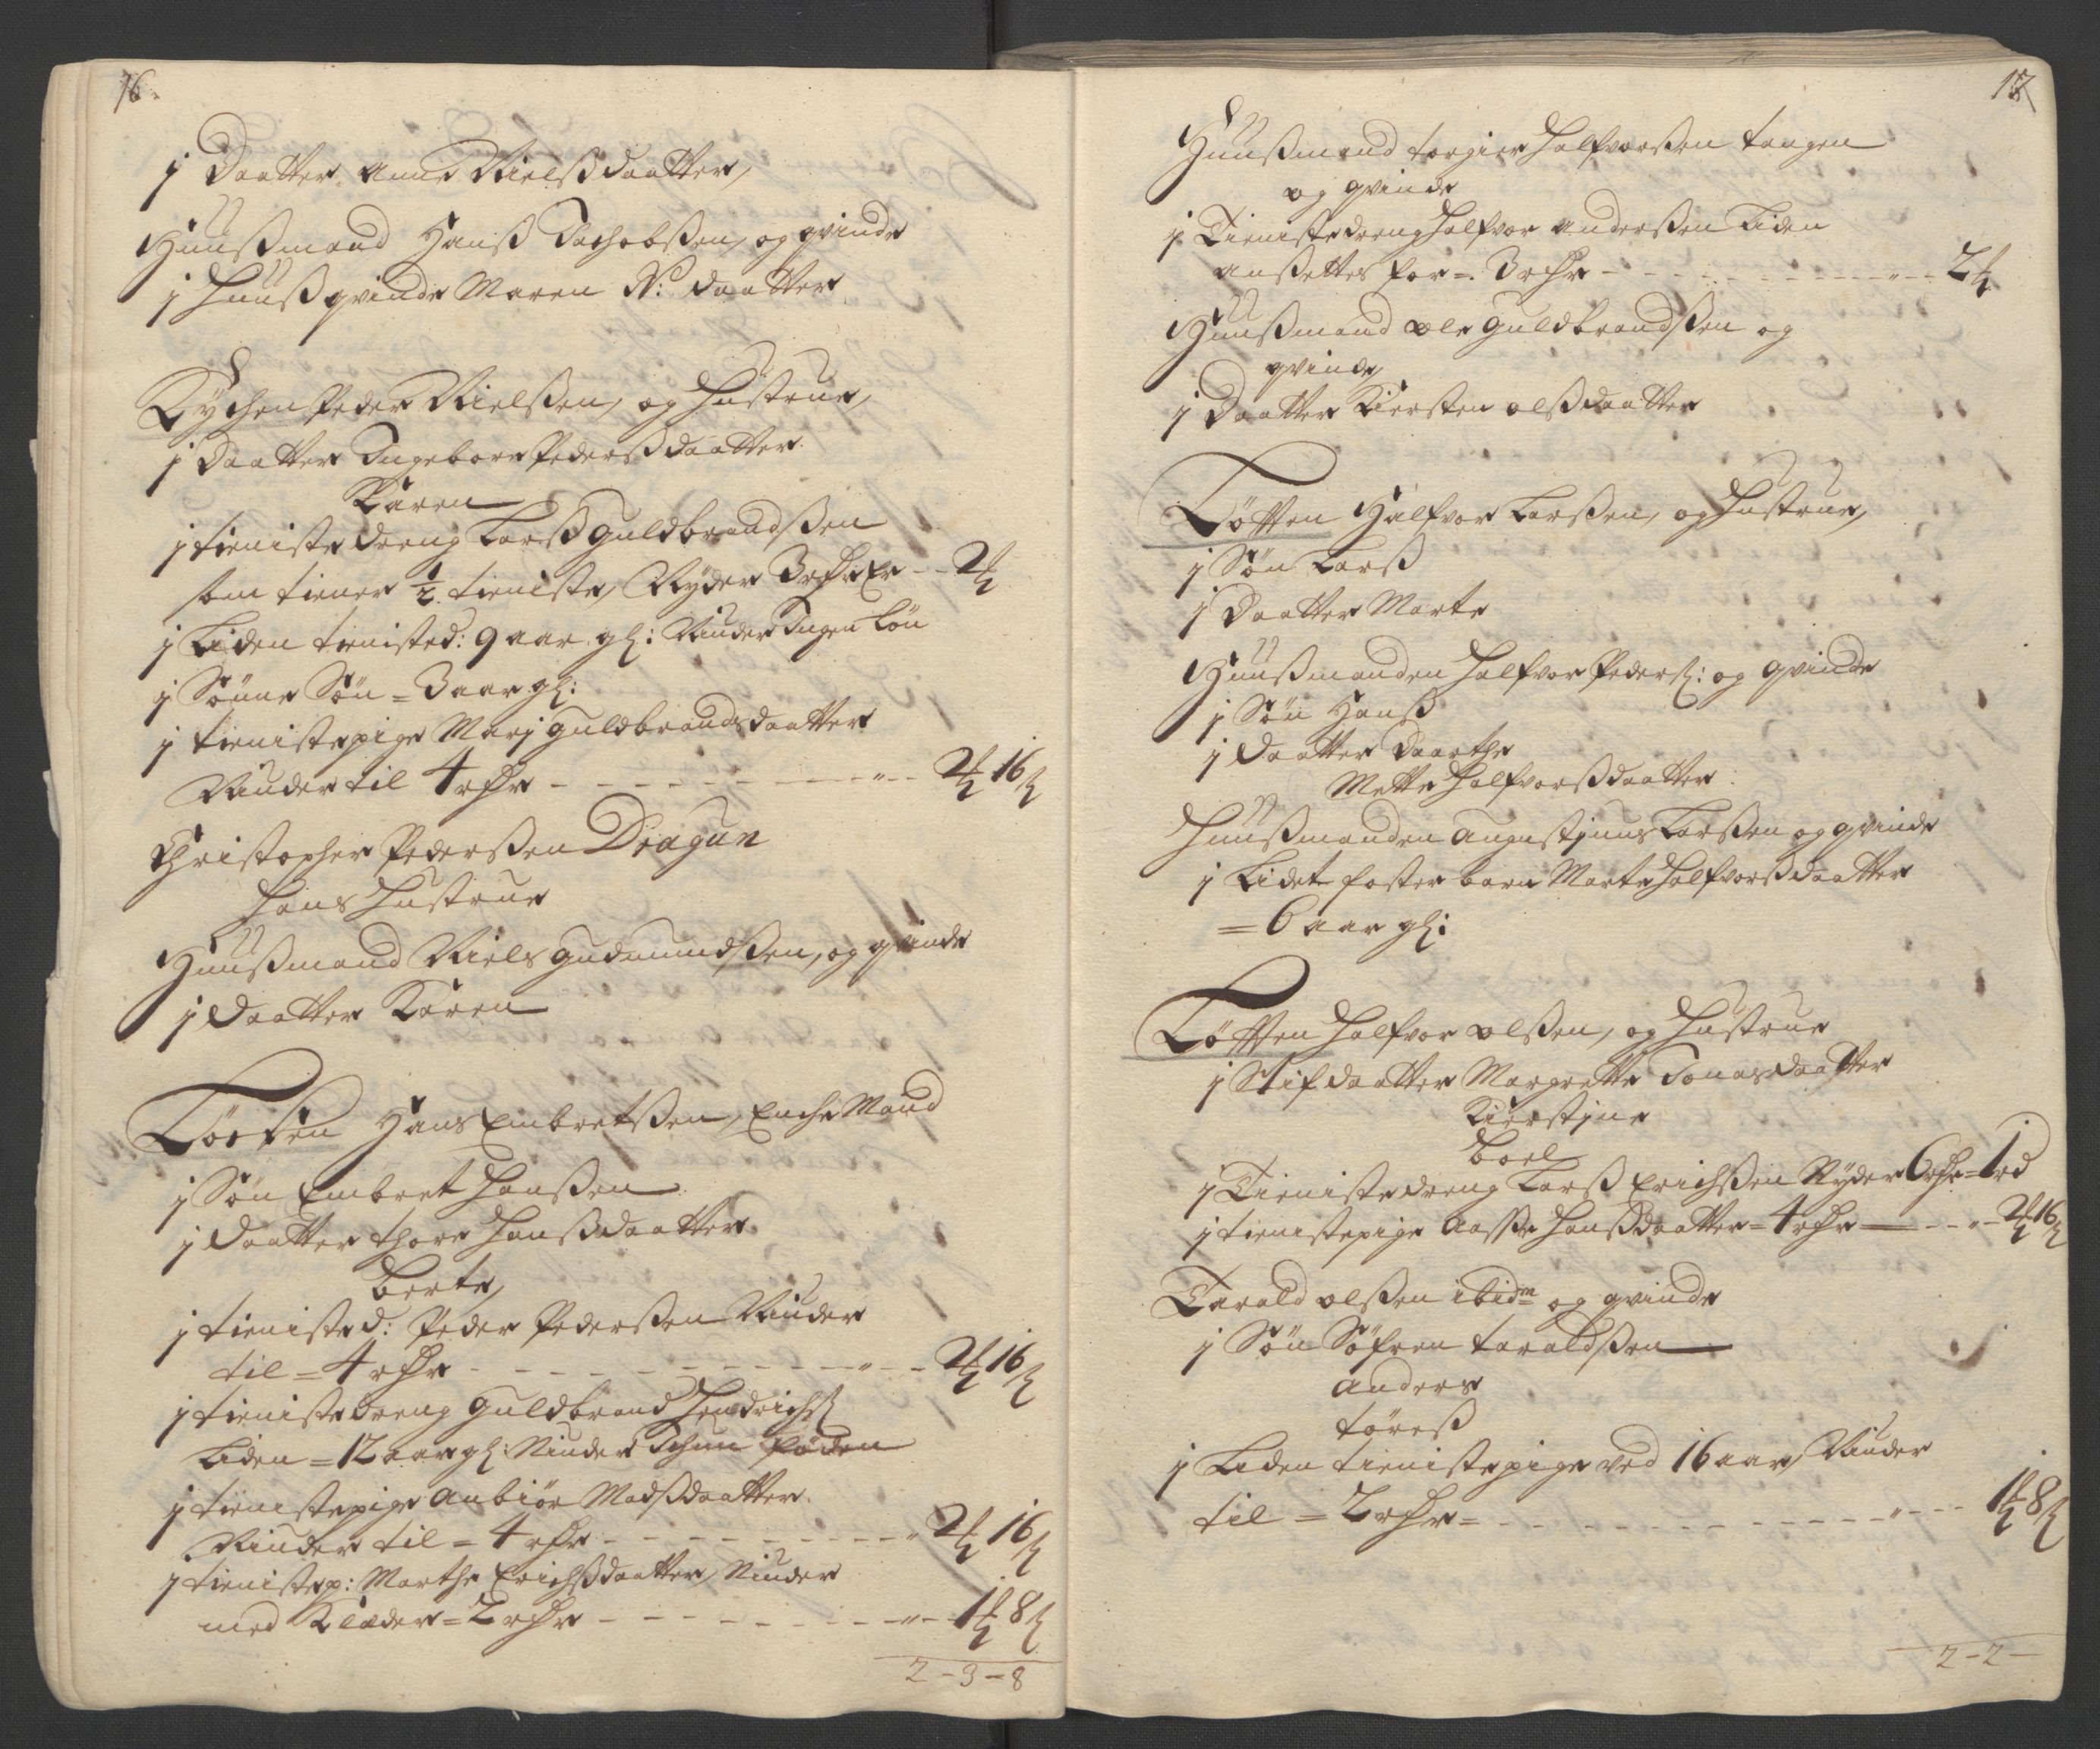 16.
j Daatter anne Nielsß daatter,
Huußmand Hanß Jachobßen, og qvinde
j Huußqvinde Maren N: daatter
Rychen Peder Nielßen, og Hustrue,
j Daatter Ingeborr Pederßdaatter.
Karen
j tieniste dreng Larß Guldbrandßen
som tiener ½ tieniste, Nyder 3 rdhr Er - - 2 ₰
j Liden tienisted: 9 aar gl: Niuder Ingen Løn
j Sønne Søn = 3 aar gl:
j tienistepige Marj Guldbrandsdaatter
Niuder til 4 rdhr - - - - - - - " - - 2 ₰ 16 ß
Christopher Pederßen Dragun
Hans Hustrue
Huußmand Niels Gudmundßen, og qvinde
j Daatter Karen
Hans Embretßen, Enche Mand
j Søn Embret Hanßen
j Daatter thore Hanßdaatter
Berte,
j tienisted: Peder Pederßen Niuder
til = 4 rdhr - - - - - - - " - - 2 ₰ 16 ß
j tieniste dreng Guldbrand Hendrichß
Liden = 12 aar gl: Niuder Ichun føden
j tienistepige Anbiør Madßdaatter.
Niuder til = 4 rdhr - - - - - - - " 2 ₰ 16 ß
j tienistep: Marthe Erichßdaatter, Niuder
med Klæder = 2 rdhr - - - - - - " - - 1 ₰ 8 ß
2 - 3 - 8
17
Huußmand torgier Halfvorßen tangen
og qvinde
j Tienistedreng Halfvor Anderßen Liden
anßettes for = 3 rdhr - - - - - - - " - - 2 ₰
Huußmand ole Guldbrandßen og
qvinde
j Daatter Kiersten olßdaatter
Tøtten Halfvor Larßen, og Hustrue,
j Søn Larß
j Daatter Marte
Huußmanden Halfvor Pederß: og qvinde
j Søn Hanß
j Daatter Daarthe
Mette Halfvorßdaatter
Huußmanden Augustinus Larßen og qvinde
j Lidet foster barn Marte Halfvorßdaatter
= 6 aar gl:
Tøtten Halfvor olßen, og Hustrue
j Stifdaatter Margrette Jonasdaatter
Kierstine
Boel
j Tienistedreng Larß Erichßen Nyder 6 rdhr = 1 rd
j tienistepige Aasse Hanßdaatter = 4 rdhr - - " - 2 ₰ 16 ß
Tarald olßen ibidm og qvinde
j Søn Søfren taraldßen
Anders
tøreß
j Liden tienistepige ved 16 aar, Niuder
til = 2 rdhr = - - - - - - - " - - 1 ₰ 8 ß
2 - 2 -